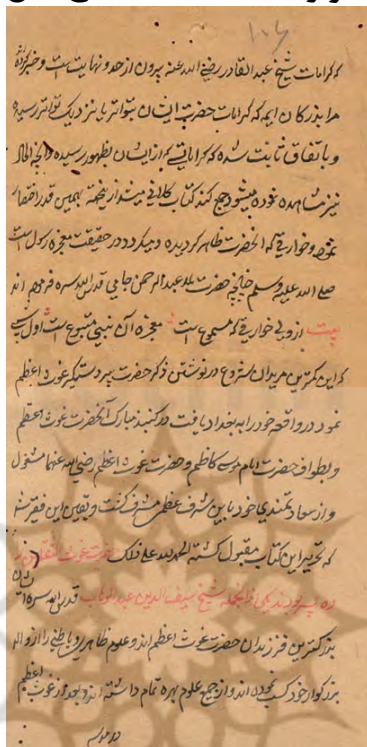 ۱۰۶
که کرامات شیخ عبدالقادر رضی الله عنه بیرون از حد و نهایت است و خبر کرده
مرا بزرگان ایمه که کرامات حضرت ایشان بتواتر یا نزدیک بتواتر رسیده
و باتفاق ثابت شده که کراماتیکه از ایشان بظهور رسیده
نیز مشاهده نموده میشود جمع کند کتاب کلانی میشد ازینجهة بهمین قدر اقتصار
نمود و خوارقی که از آنحضرت ظاهر گردیده و میگردد در حقیقت معجزه رسول است
صلی الله علیه و سلم چنانچه حضرت ملا عبدالرحمن جامی قدس الله سره فرموده اند
بیت از ولی خوارقی که مسموع است معجزه آن نبی متبوع است
که این کمترین مریدان شروع در نوشتن ذکر حضرت پیر دستگیر غوث اعظم
نمود در واقعه خود را به بغداد یافت در گنبد مبارک آنحضرت غوث اعظم
و بطواف حضرت امام موسی کاظم و حضرت غوث اعظم رضی الله عنهما مشغول
و از سعادتمندی خود باین شرف عظمی مشرف گشت و یقین این فقیر شد
که تحریر این کتاب مقبول گشته الحمد لله علی ذلک حضرت غوث الثقلین را
ده پسر بودند یکی از آنجمله شیخ سیف الدین عبدالوهاب قدس الله سره ایشان
بزرگترین فرزندان حضرت غوث اعظم اند و علوم ظاهری و باطنی را از والد
بزرگوار خود کسب نموده اند و از جمیع علوم بهره تمام داشته اند و بعد از غوث اعظم
در مدرسه